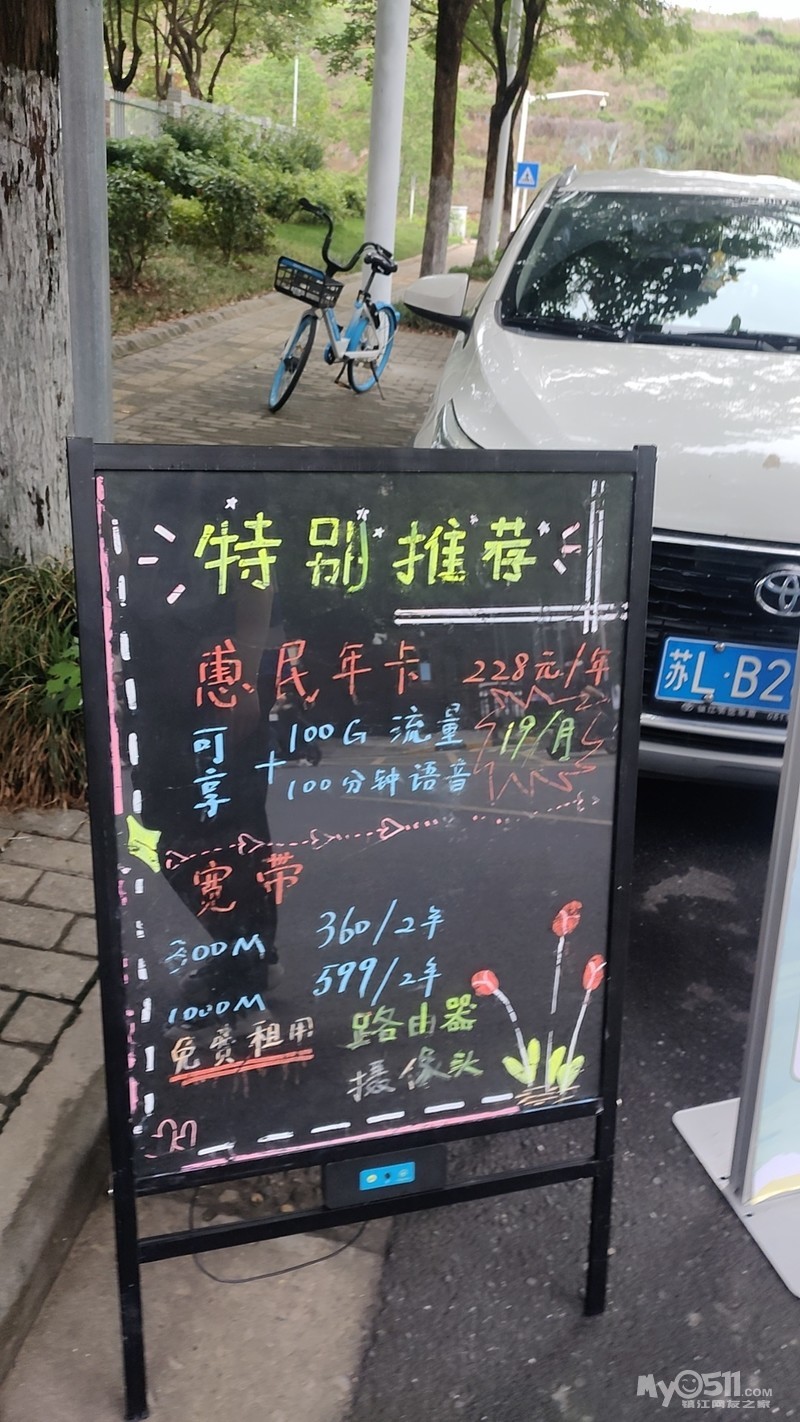 特别推荐
惠民年卡 228元/年
可享 + 100G 流量 19/月
100分钟语音
宽带
300M 360/2年
1000M 599/2年
免费租用 路由器
摄像头
苏L·B2
My0511.COM
镇江网友之家